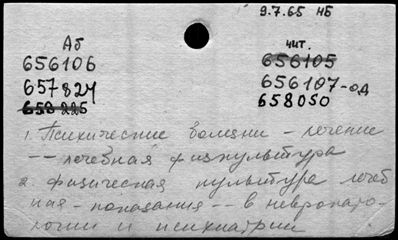 9.7.65 нб
Аб
656106
657824
658225
чит.
656105
656107-од
658050
1. Психические болезни - лечение
-- лечебная физкультура
2. физическая культура лечеб
ная - показания -- в невропато-
логии и психиатрии